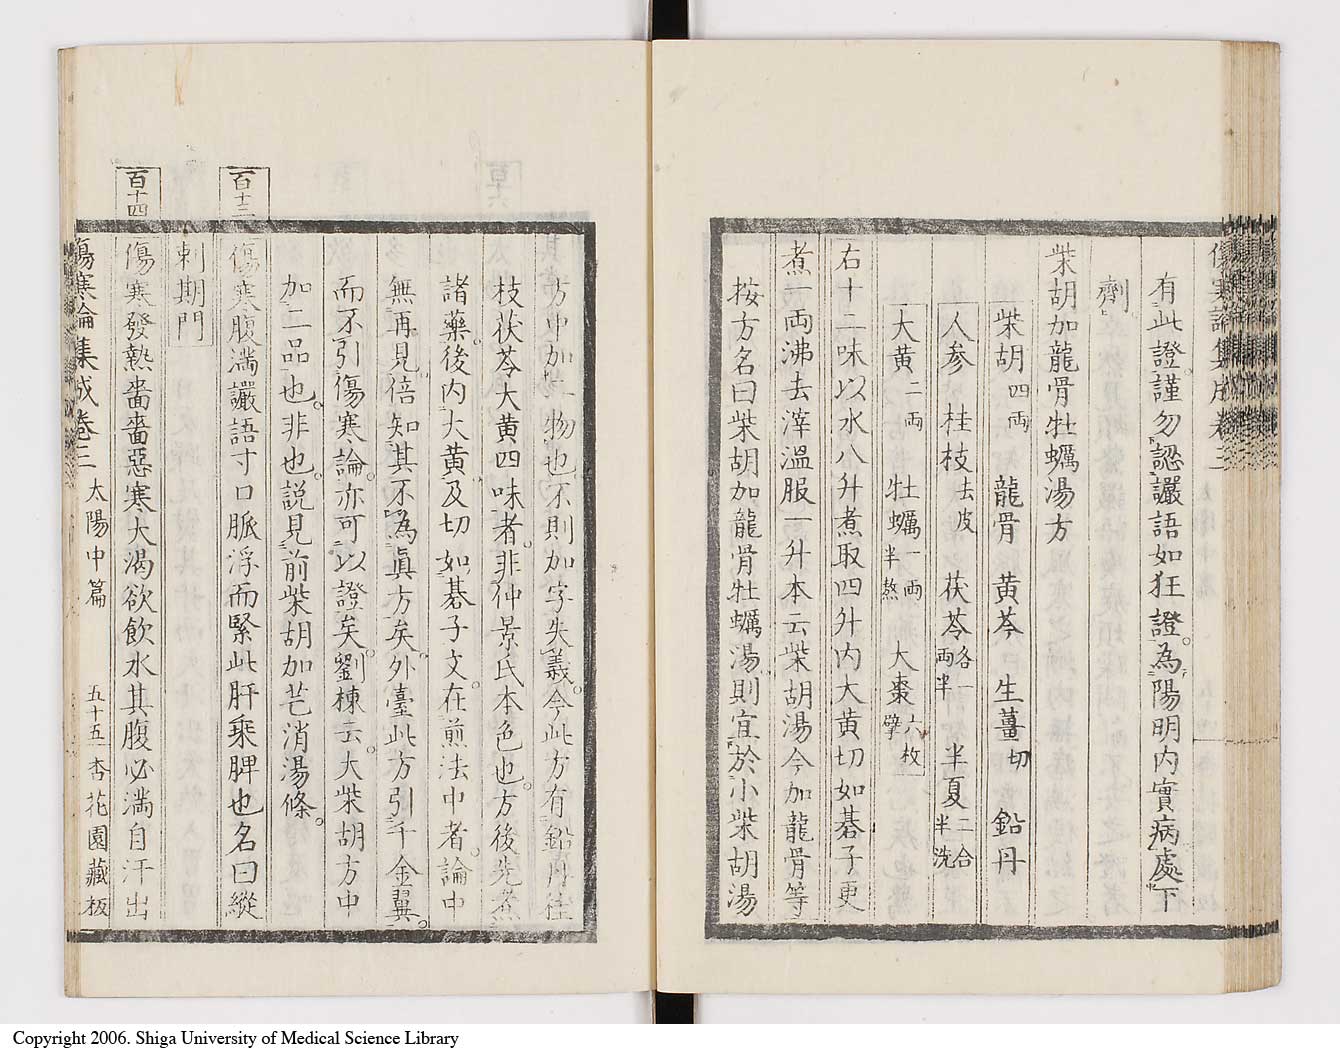 有此證。謹勿認讝語如狂證。為陽明內實病處下
劑。
柴胡加龍骨牡蠣湯方
柴胡四両 龍骨 黄芩 生薑切 鉛丹
人参 桂枝去皮 茯苓各一両半 半夏二合半洗
大黄二両 牡蠣一両半熬 大棗六枚擘
右十二味以水八升煮取四升内大黄切如碁子更
煮一両沸去滓溫服一升本云柴胡湯今加龍骨等
按方名曰柴胡加龍骨牡蠣湯則宜於小柴胡湯
方中加二物也。不則加字失義。今此方有鉛丹桂
枝茯苓大黄四味者。非仲景氏本色也。方後先煮
諸藥後内大黄。及切如碁子文。在煎法中者。論中
無再見。倍知其不為眞方矣。外臺此方引千金翼。
而不引傷寒論。亦可以證矣。劉棟云。大柴胡方中
加二品也。非也。説見前柴胡加芒消湯條。
百十三
傷寒腹満讝語寸口脈浮而緊此肝乗脾也名曰縱
刺期門
百十四
傷寒發熱嗇嗇惡寒大渴欲飲水其腹必満自汗出
傷寒論集成卷三 太陽中篇 五十五 杏花園藏板
Copyright 2006. Shiga University of Medical Science Library